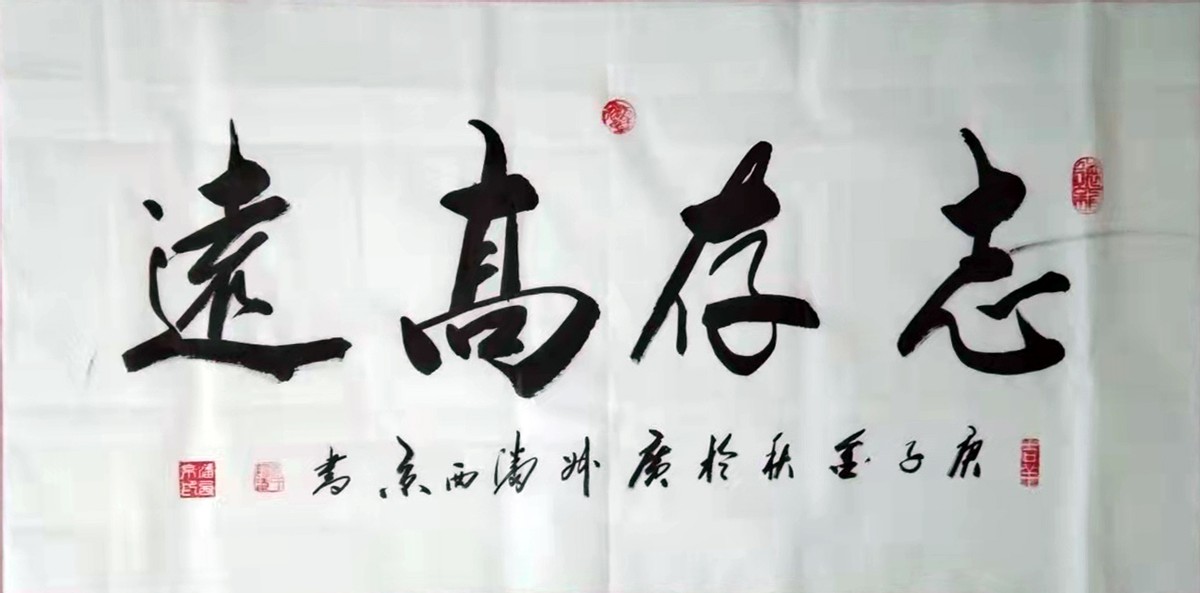 志存高遠
庚子金秋於廣州潘西京書